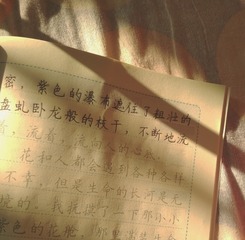 密，紫色的瀑布遮住了粗壮的
盘虬卧龙般的枝干，不断地流
着，流着，人的心底。
花和人都会遇到各种各样
不幸，但是生命的长河是无
境的。我抚摸了一下那小小
紫色的花舱，那